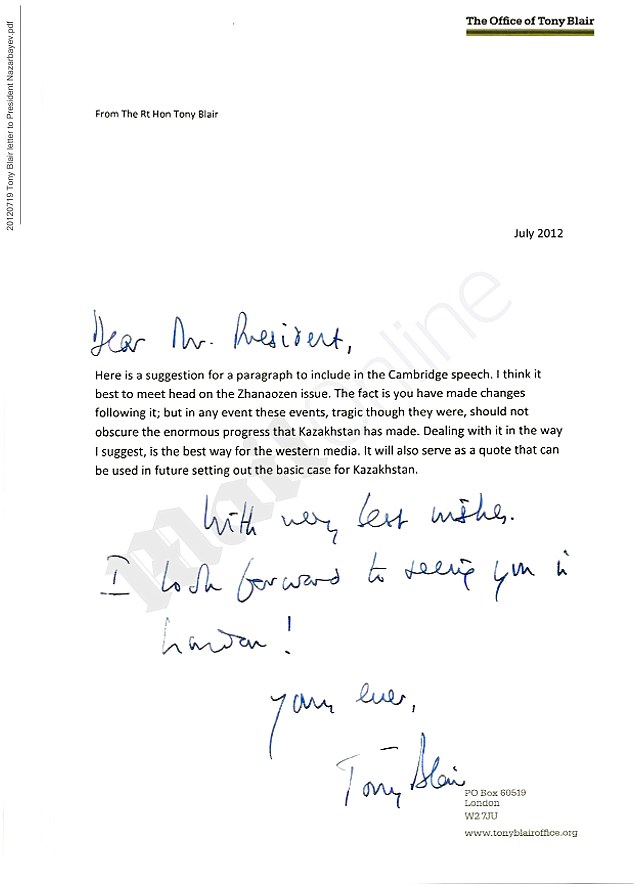 The Office of Tony Blair
20120719 Tony Blair letter to President Nazarbayev.pdf
From The Rt Hon Tony Blair
July 2012
Dear Mr. President,
Here is a suggestion for a paragraph to include in the Cambridge speech. I think it
best to meet head on the Zhanaozen issue. The fact is you have made changes
following it; but in any event these events, tragic though they were, should not
obscure the enormous progress that Kazakhstan has made. Dealing with it in the way
I suggest, is the best way for the western media. It will also serve as a quote that can
be used in future setting out the basic case for Kazakhstan.
With very best wishes.
I look forward to seeing you in
London!
Yours ever,
Tony Blair
PO Box 60519
London
W2 7JU
www.tonyblairoffice.org
Mail Online